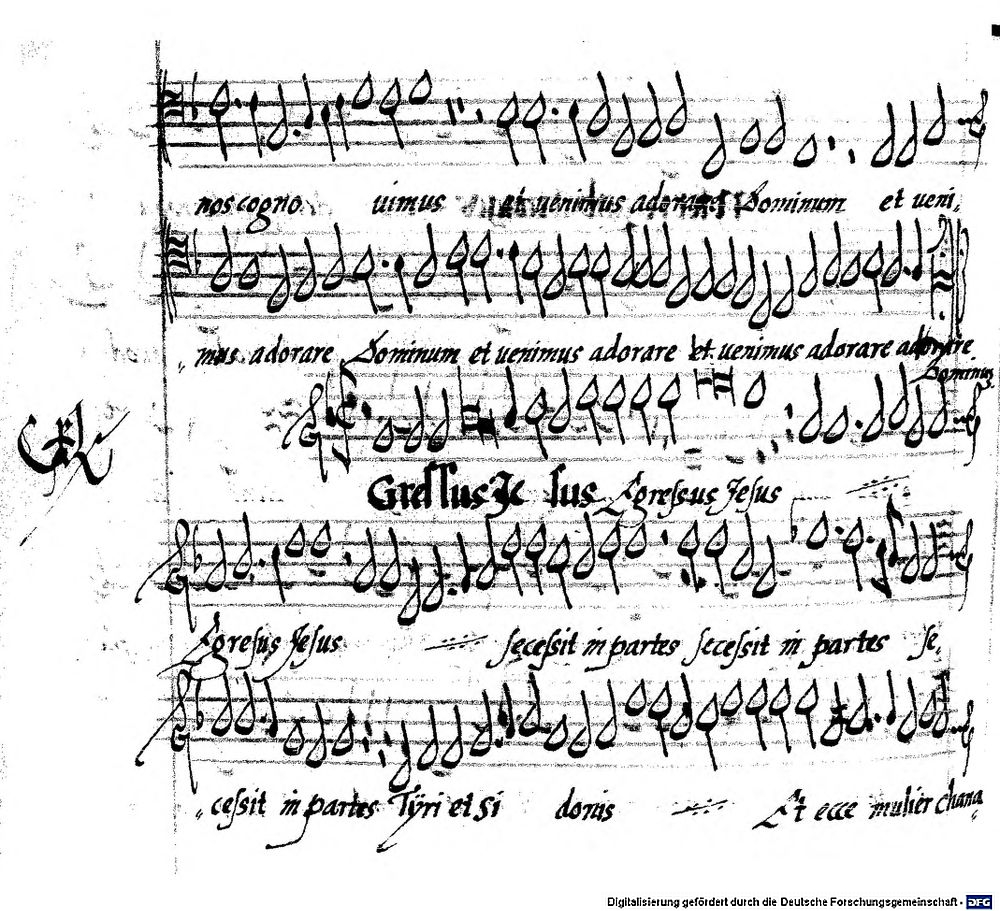 nos cogno uimus et uenimus adorare Dominum et ueni,
mus adorare Dominum et uenimus adorare et uenimus adorare adorare
Dominus
Gressus Je sus Egressus Jesus
Egresus Jesus secessit in partes secessit in partes se,
cessit in partes Tÿri et Si donis Et ecce mulier chana
Digitalisierung gefördert durch die Deutsche Forschungsgemeinschaft - DFG